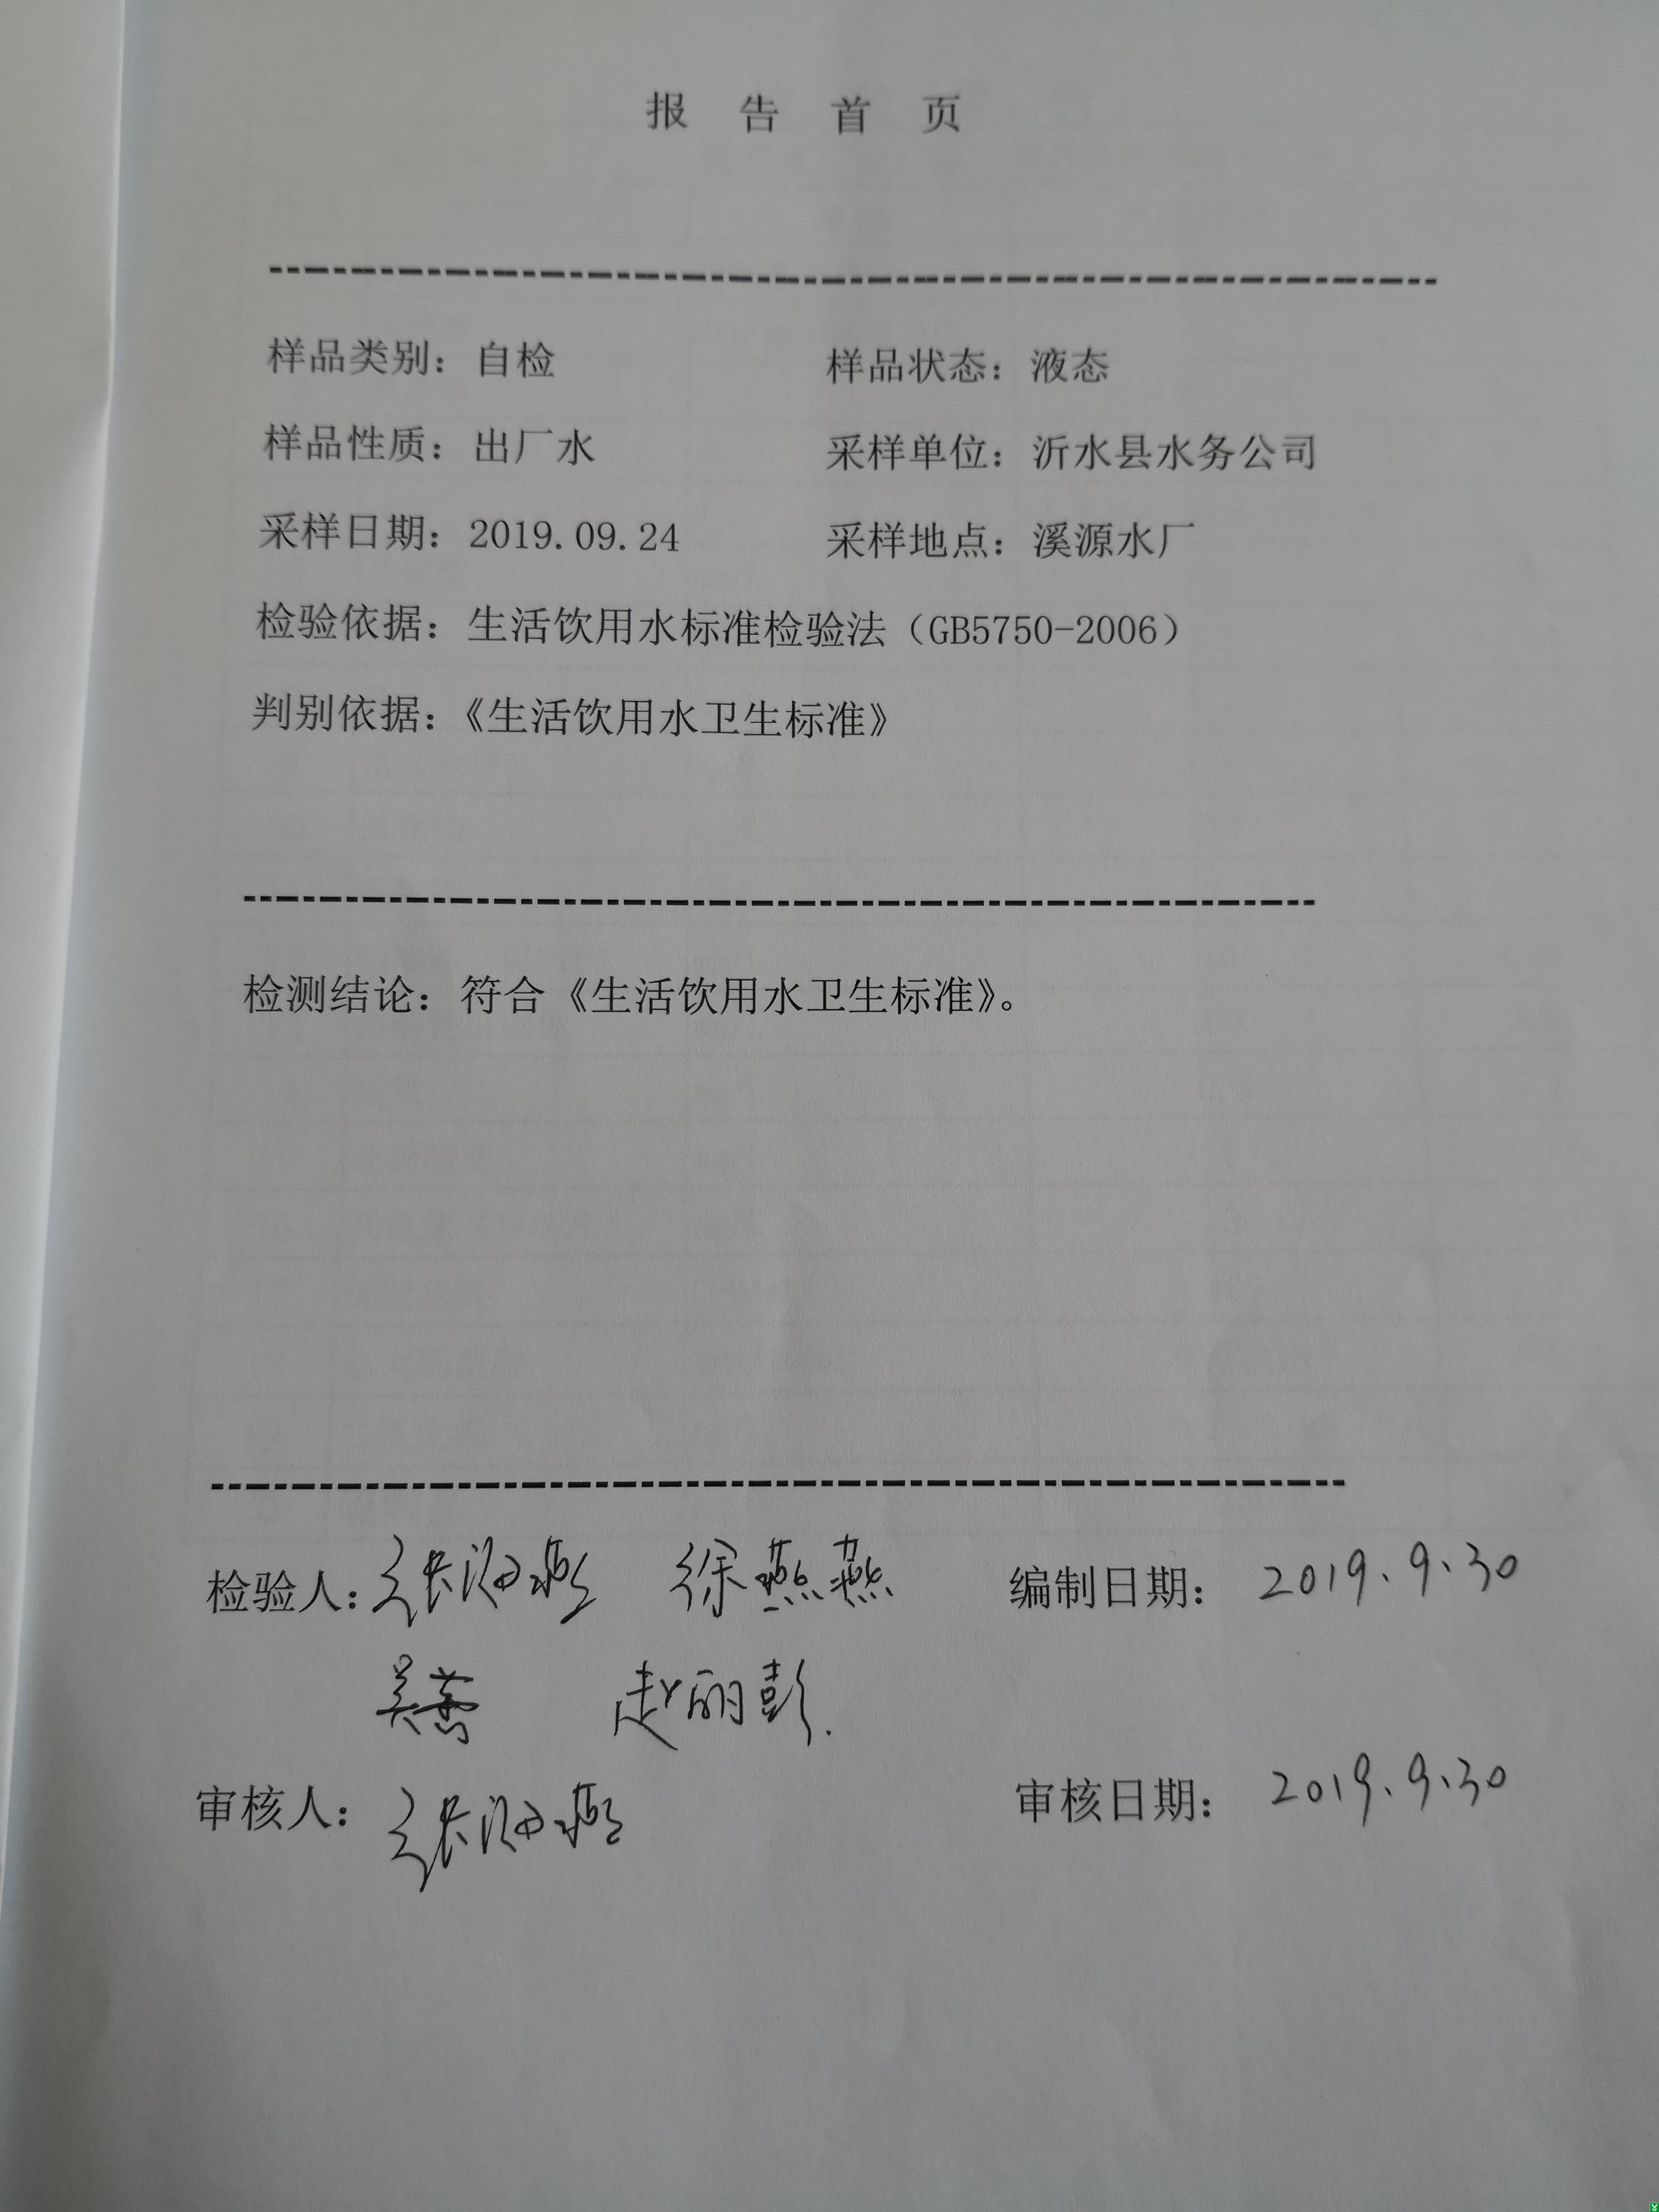 报告首页
样品类别：自检 样品状态：液态
样品性质：出厂水 采样单位：沂水县水务公司
采样日期：2019.09.24 采样地点：溪源水厂
检验依据：生活饮用水标准检验法（GB5750-2006）
判别依据：《生活饮用水卫生标准》
检测结论：符合《生活饮用水卫生标准》。
检验人：张海燕 徐燕燕 编制日期：2019.9.30
赵丽彭
审核人：张海燕 审核日期：2019.9.30